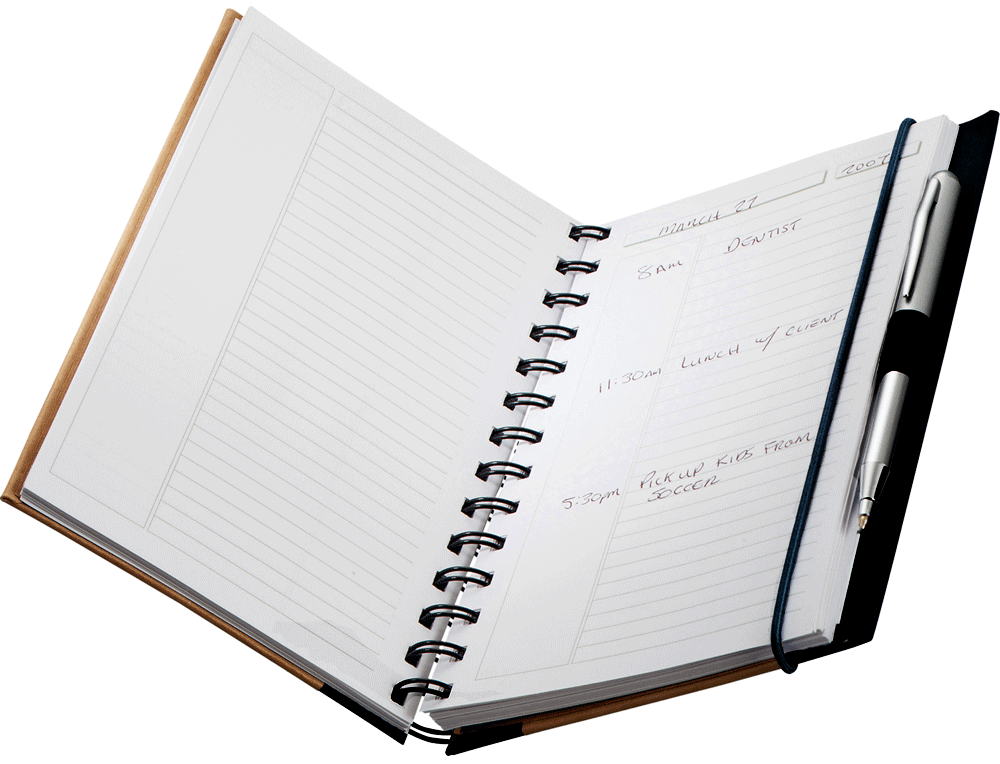 MARCH 27
2007
8AM DENTIST
11:30AM LUNCH w/ CLIENT
5:30pm PICK UP KIDS FROM
SOCCER